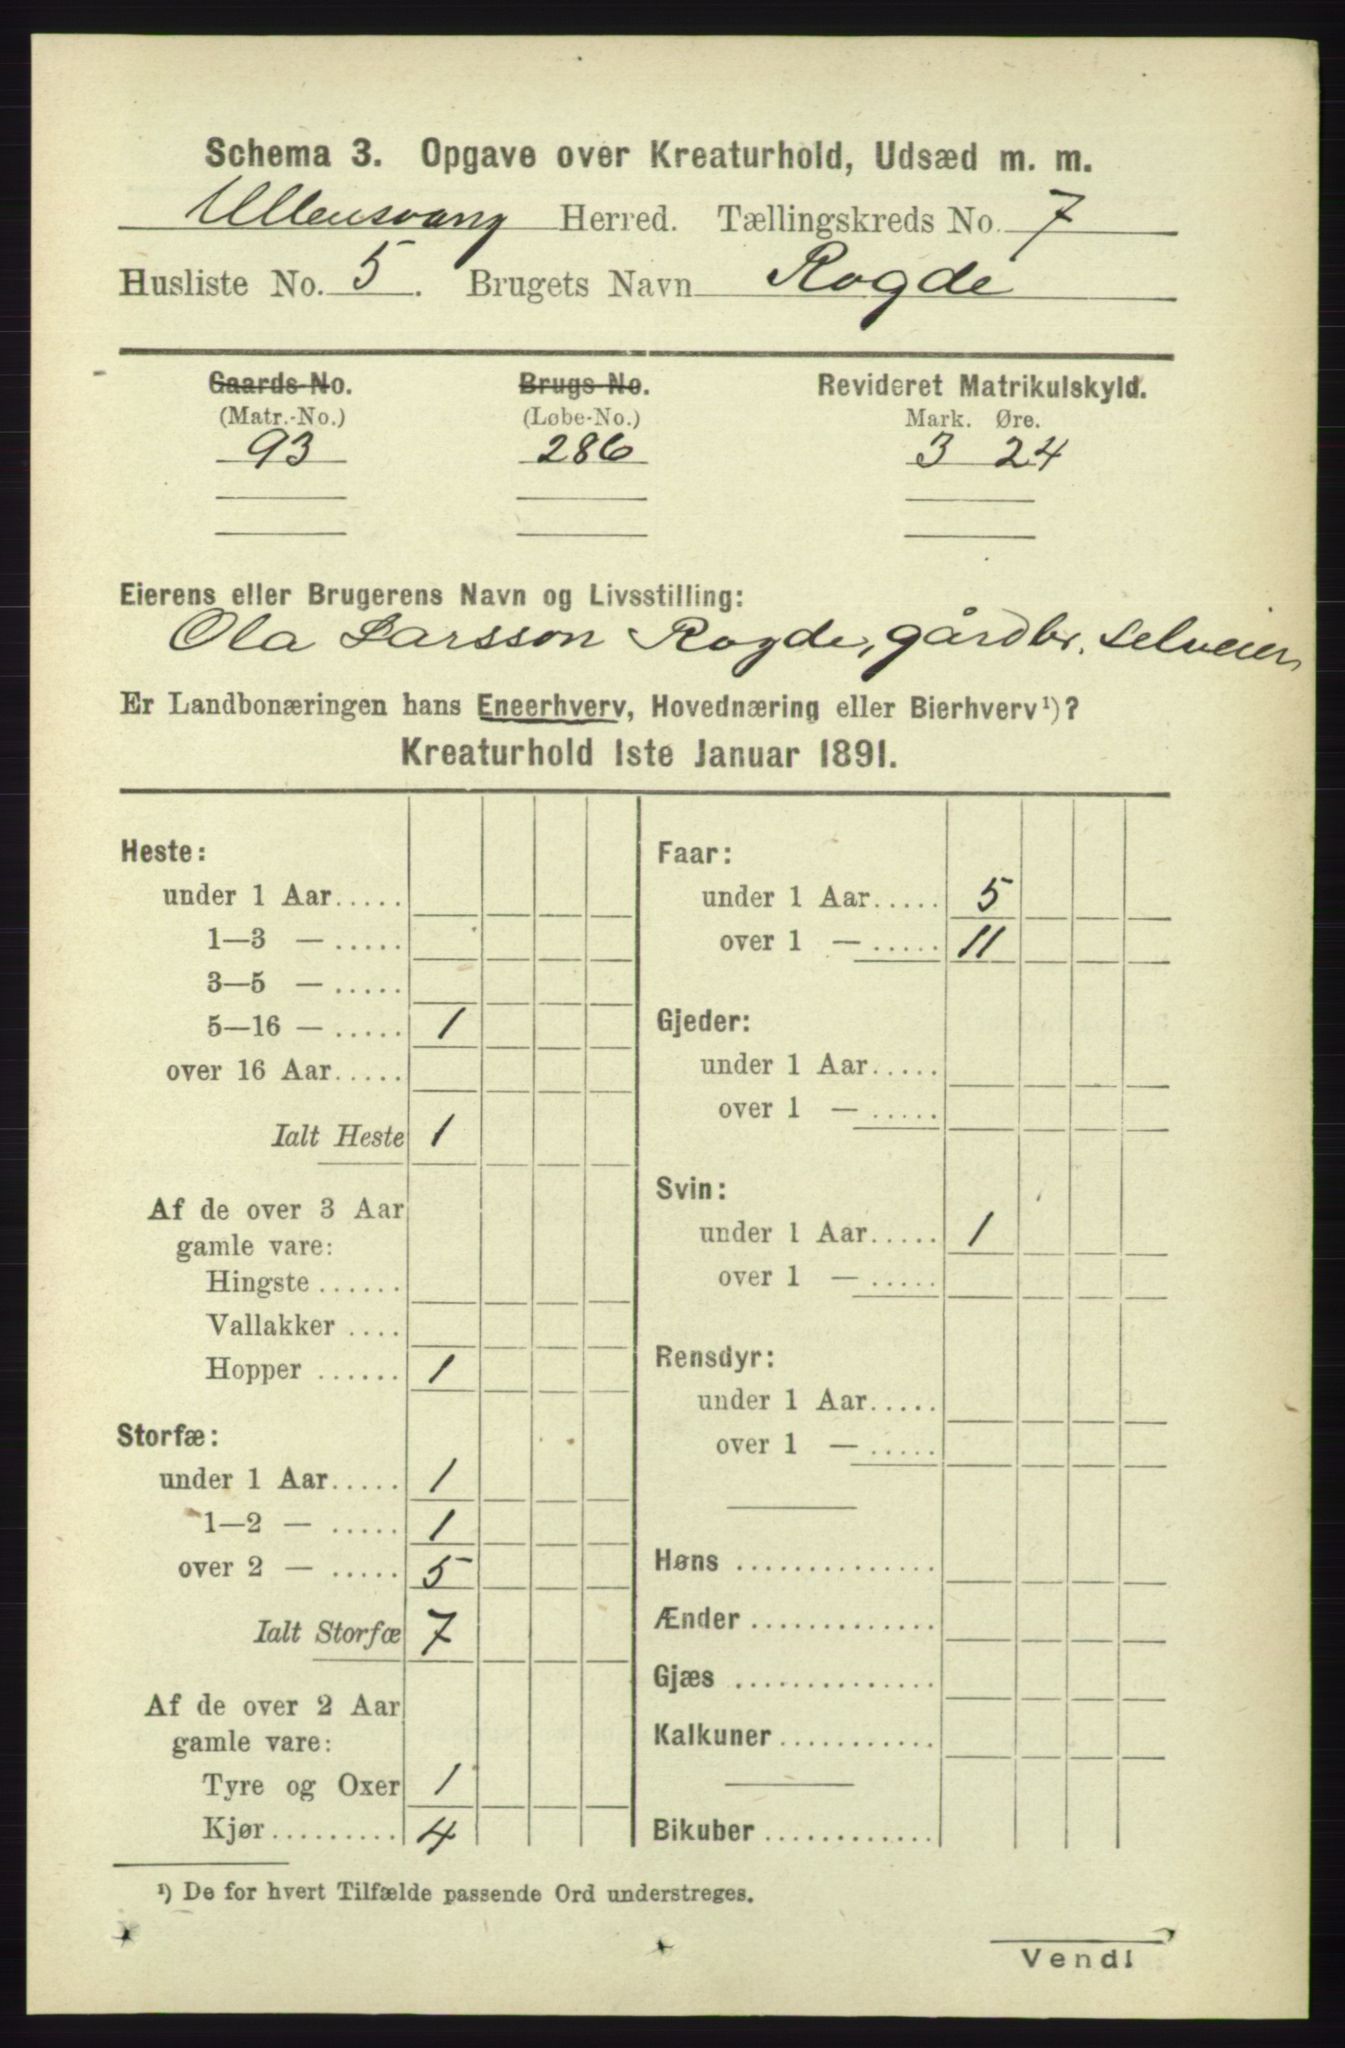 Schema 3. Opgave over Kreaturhold, Udsæd m. m.
Ullensvang Herred. Tællingskreds No. 7
Husliste No. 5. Brugets Navn Rogde
Gaards-No. Brugs-No. Revideret Matrikulskyld.
(Matr.-No.) (Løbe-No.) Mark. Øre.
93 286 3 24
Eierens eller Brugerens Navn og Livsstilling:
Ola Larsson Rogde, gårdbr. selveier
Er Landbonæringen hans Eneerhverv, Hovednæring eller Bierhverv¹)?
Kreaturhold 1ste Januar 1891.
Heste:
under 1 Aar.....
1—3 — .....
3—5 — .....
5—16 — ..... 1
over 16 Aar.....
Ialt Heste 1
Af de over 3 Aar
gamle vare:
Hingste ......
Vallakker ....
Hopper ...... 1
Storfæ:
under 1 Aar..... 1
1—2 — ..... 1
over 2 — ..... 5
Ialt Storfæ 7
Af de over 2 Aar
gamle vare:
Tyre og Oxer 1
Kjør......... 4
Faar:
under 1 Aar..... 5
over 1 — ..... 11
Gjeder:
under 1 Aar.....
over 1 — .....
Svin:
under 1 Aar..... 1
over 1 — .....
Rensdyr:
under 1 Aar.....
over 1 — .....
Høns ..............
Ænder .............
Gjæs ..............
Kalkuner...........
Bikuber ............
¹) De for hvert Tilfælde passende Ord understreges.
Vend!